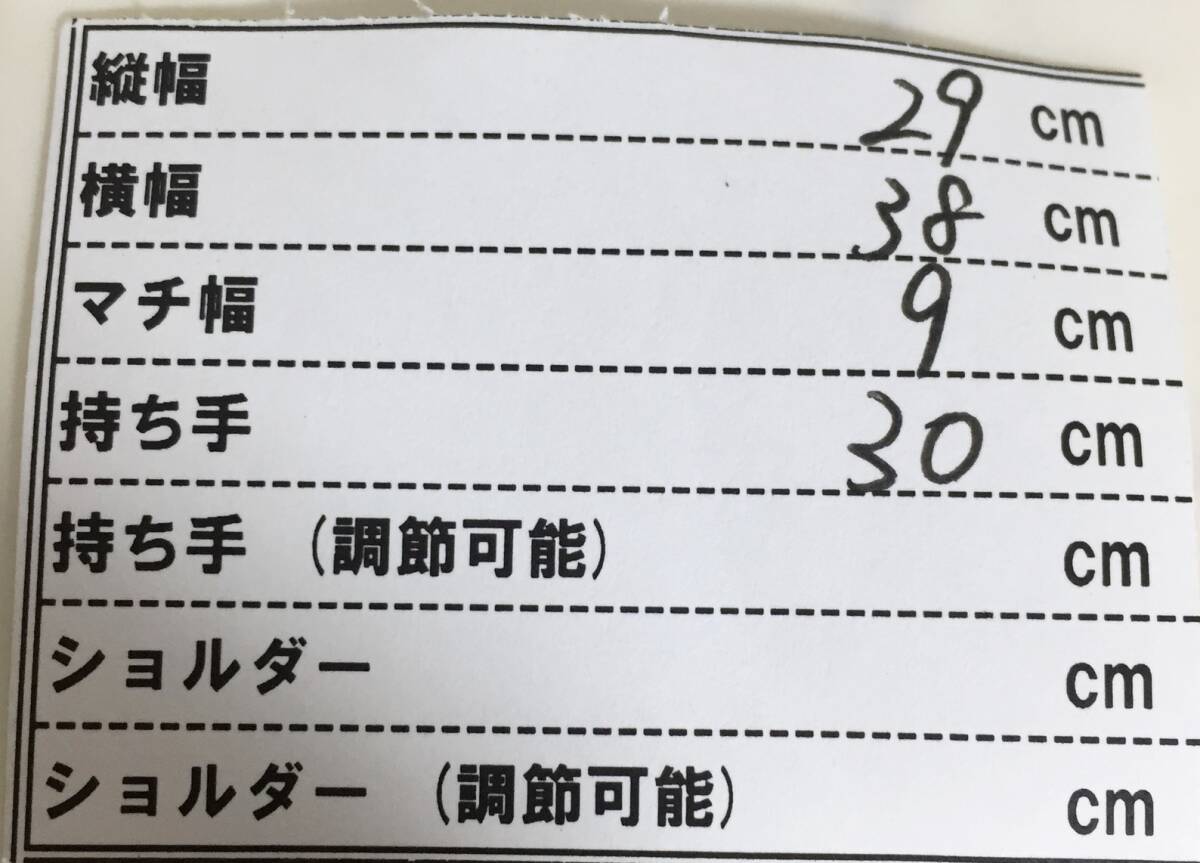 縦幅 29 cm
横幅 38 cm
マチ幅 9 cm
持ち手 30 cm
持ち手 (調節可能) cm
ショルダー cm
ショルダー (調節可能) cm